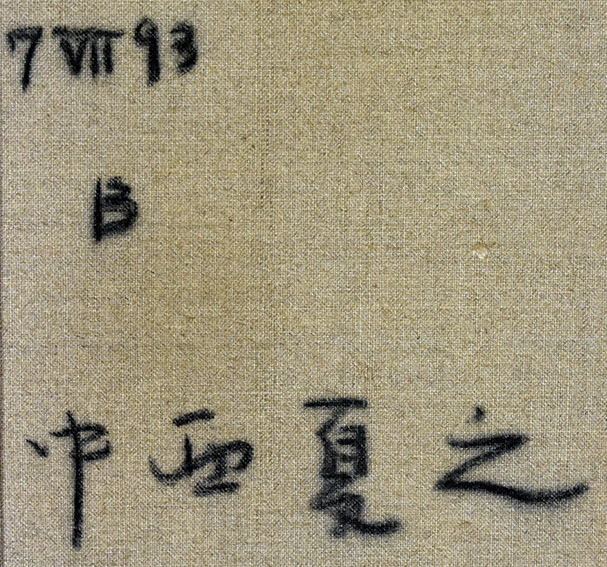 7 VII 93
B
中西夏之